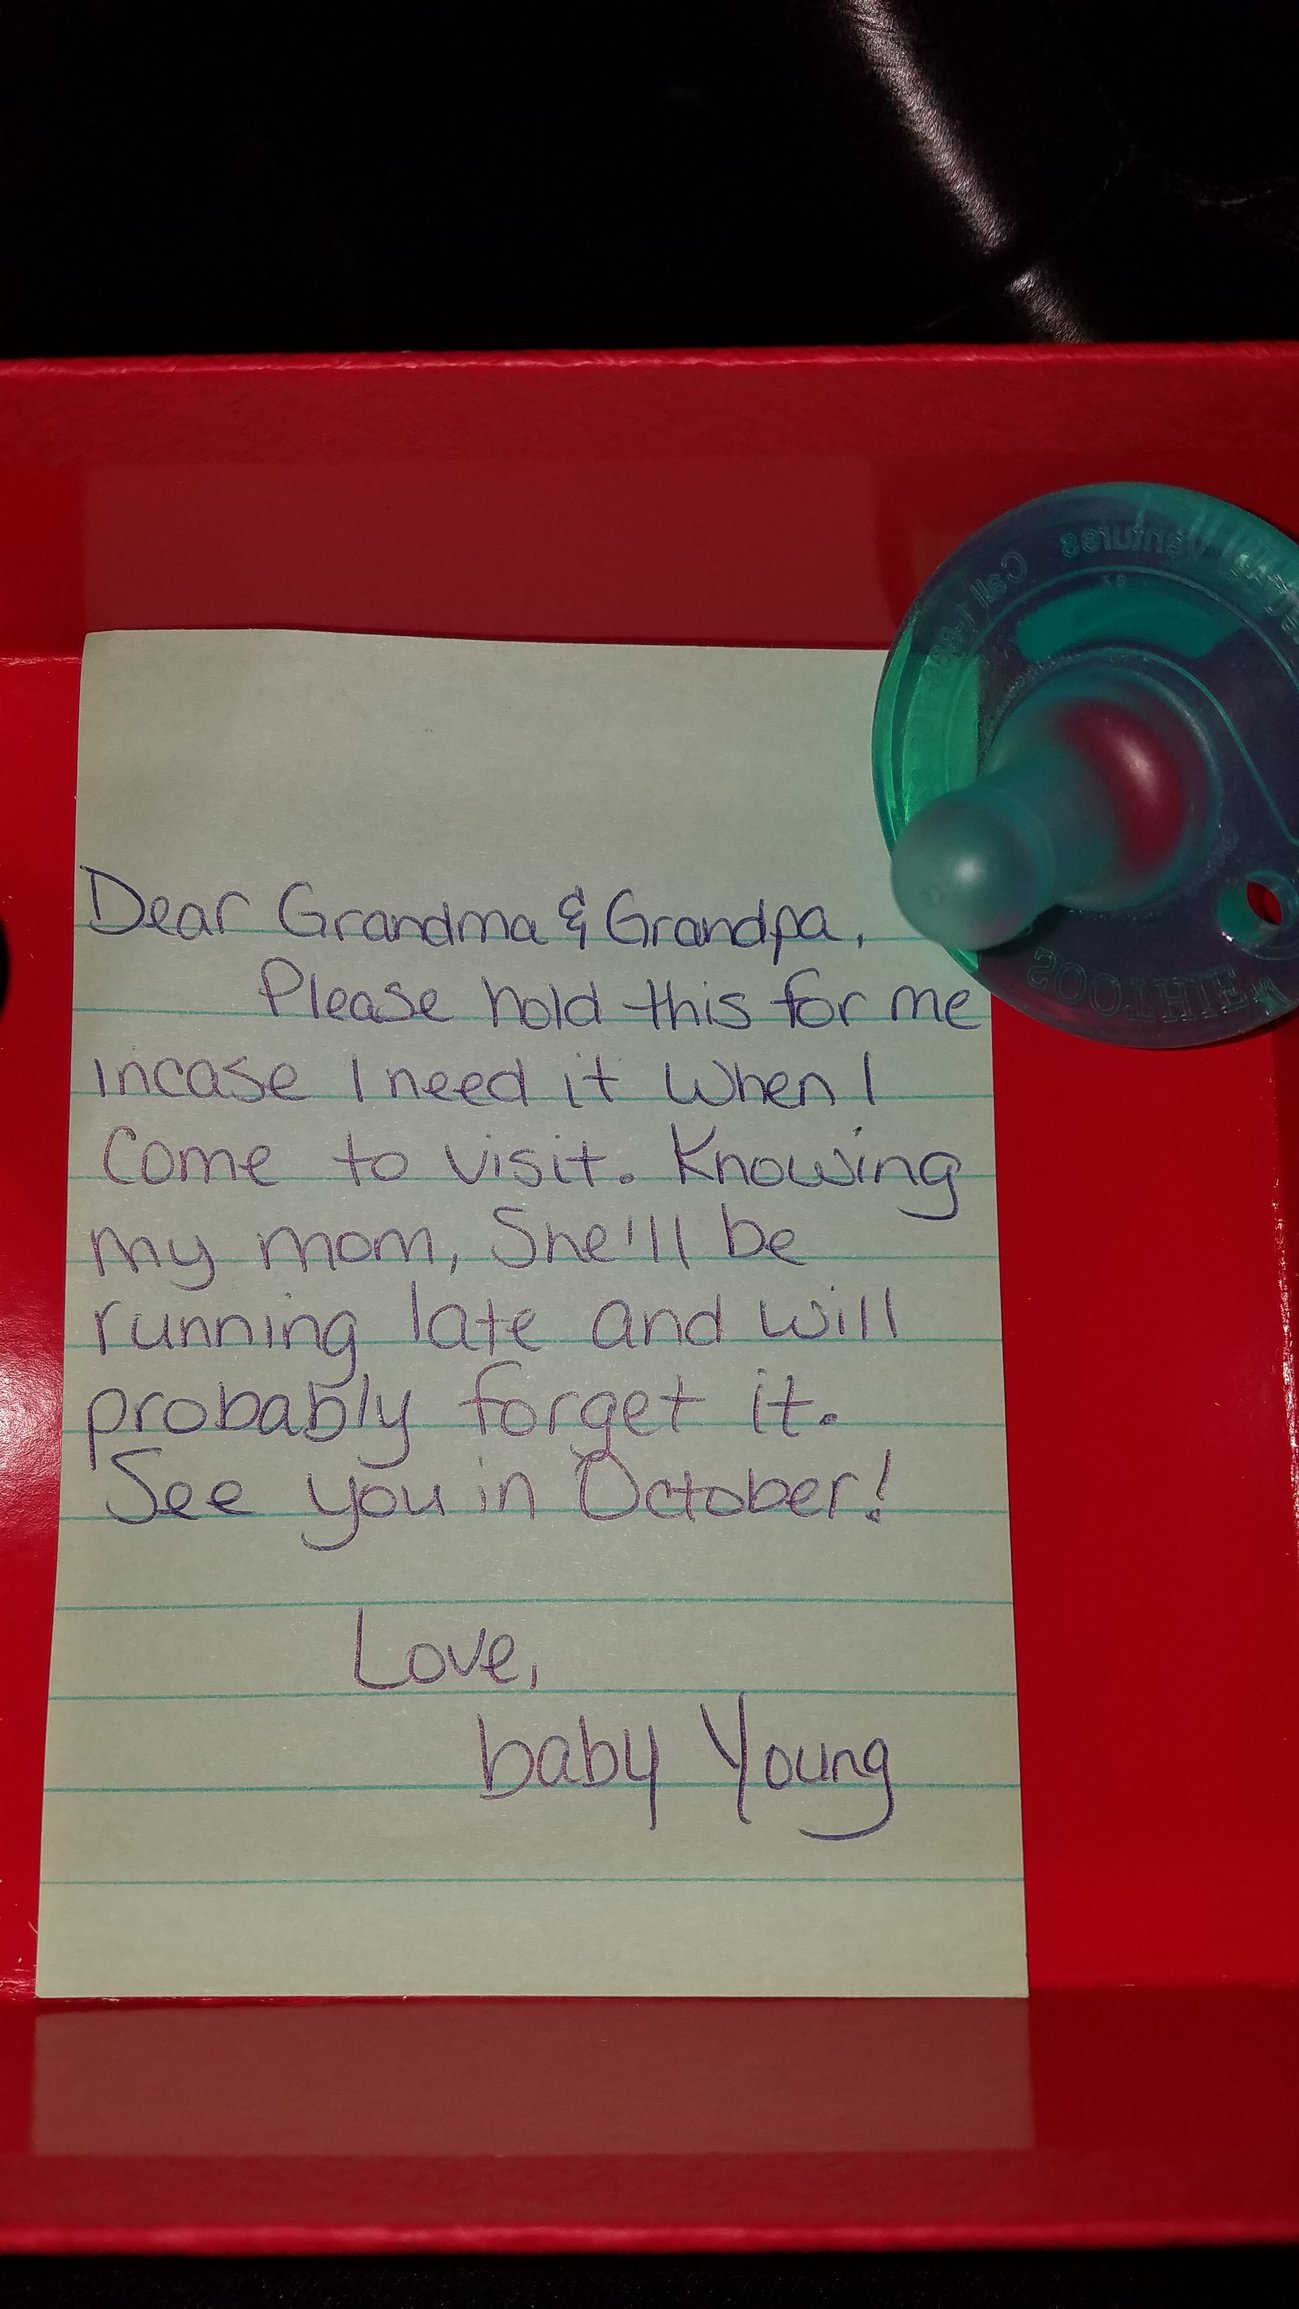 Dear Grandma & Grandpa,
Please hold this for me
incase I need it when I
come to visit. Knowing
my mom, She'll be
running late and will
probably forget it.
See you in October!
Love,
baby Young
Ventures Call 1-88
SOOTHIE